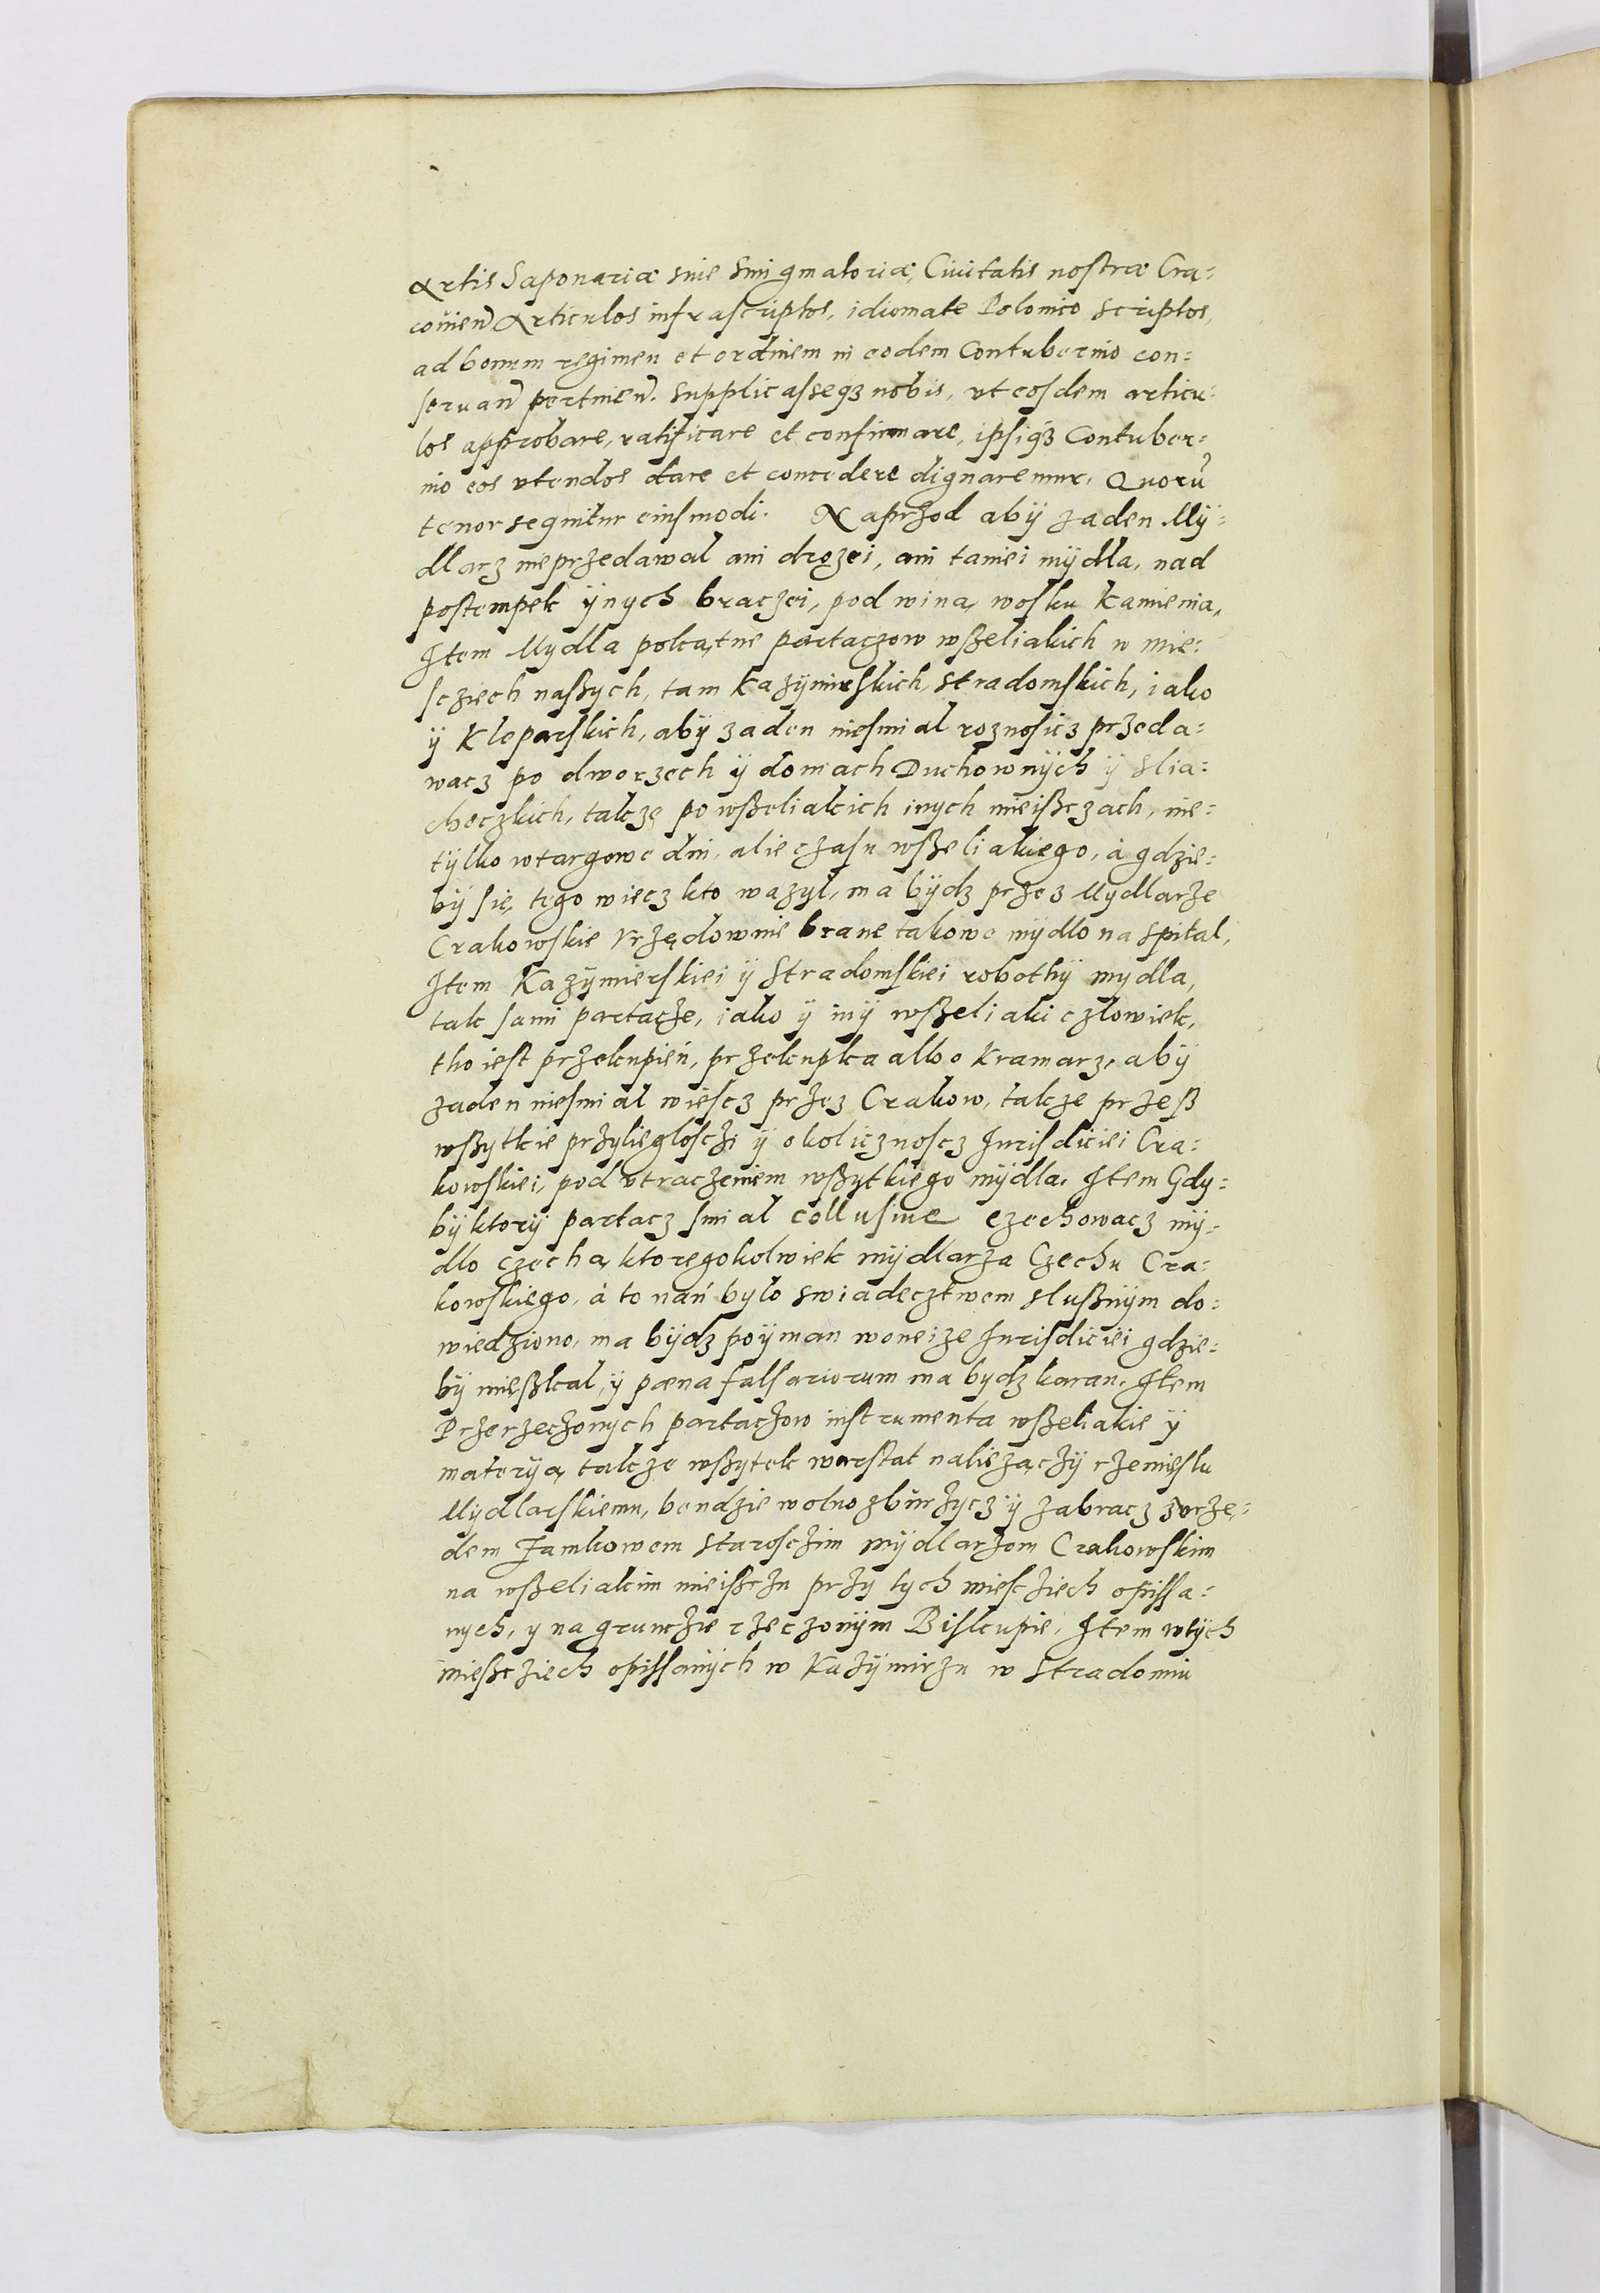 Artis Saponariæ siue Smigmatoriæ, Ciuitatis nostræ Cra=
couien̄ Articulos infrascriptos, idiomate Polonico scriptos,
ad bonum regimen et ordinem in eodem Contubernio con=
seruan̄ pertinen̄. supplicasseqꝫ nobis, vt eosdem articu=
los approbare, ratificare et confirmare, ipsiqꝫ Contuber=
nio eos vtendos dare et concedere dignaremur. Quorū
tenor sequitur eiusmodi. Naprzod abÿ zaden Mÿ=
dlarz nieprzedawal ani drozei, ani taniei mÿdla, nad
postempek ÿnych braczei, pod winą wosku Kamienia,
Item Mydla pokątne partaczow wßeliakich w mie=
scziech naßych, tam Kazÿmirskich, Stradomskich, iako
ÿ Kleparskich, abÿ zaden niesmial roznosicz przeda=
wacz po dworzech ÿ domach Duchownÿch ÿ Slia=
checzkich, takze po wßeliakich inych mieißczach, nie=
tÿlko wtargowe dni, alie czasu wßeliakiego, à gdzie=
bÿ się tego wiecz kto wazyl, ma bÿdz przez Mydlarze
Crakowskie Vrzędownie brane takowe mÿdlo na Spital,
Item Kazÿmierskiei ÿ Stradomskiei robothÿ mydla,
tak sami partacze, iako ÿ inÿ wßeliaki czlowiek,
tho iest przekupień, przekupka albo Kramarz, abÿ
zaden niesmial wiescz przez Crakow, takze przeß
wßytkie przyliegloschi ÿ okolicznoscz Jurisdiciei Cra=
kowskiei, pod vtraczeniem wßytkiego mÿdla. Item Gdy=
bÿ ktorÿ partacz smial collusiue czechowacz mÿ=
dlo czechą ktoregokolwiek mÿdlarza Czechu Cra=
kowskiego, à to nań bylo swiadecztwem slußnÿm do=
wiedziono, ma bÿdz poÿman woneize Jurisdiciei gdzie=
bÿ mießkal, ÿ pœna falsariorum ma bydz karan. Item
Przerzeczonych partaczow instrumenta wßeliakie ÿ
materÿą takze wßytek warstat naliezączÿ rzemięslu
Mydlarskiemu, bendzie wolno zburzycz ÿ zabracz zvrzę=
dem Zamkowem Starosczim mÿdlarzom Crakowskim
na wßeliakim mieißczu przy tych miescziech opissa=
nych, y na grunczie rzeczonÿm Biskupie, Item wtÿch
mießcziech opissanÿch w Kazÿmirzu w Stradomiu